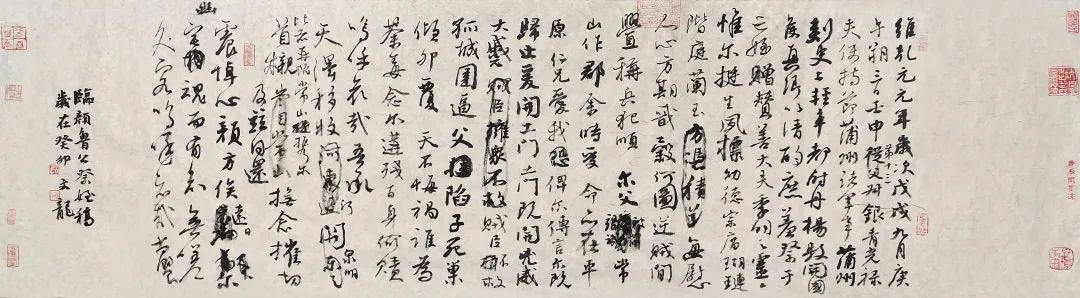 維乾元元年歲次戊戌九月庚
午朔三日壬申第十三從父叔銀青光祿
夫使持節蒲州諸軍事蒲州
刺史上輕車都尉丹楊縣開國
侯真卿以清酌庶羞祭于
亡姪贈贊善大夫季明之靈曰
惟爾挺生夙標幼德宗廟瑚璉
階庭蘭玉方憑積善每慰
人心方期戩穀何圖逆賊間
釁稱兵犯順爾父常
山作郡余時受命亦在平
原仁兄愛我恐俾爾傳言爾既
歸止爰開土門土門既開兇威
大蹙賊臣擁眾不救賊臣不救
孤城圍逼父陷子死巢
傾卵覆天不悔禍誰為
荼毒念爾遘殘百身何贖
嗚呼哀哉吾承
天澤移牧河東近河關泉明
比者再陷常山攜爾
首櫬及茲同還撫念摧切
震悼心顏方俟遠日
幽宅魂而有知無嗟
久客嗚呼哀哉尚饗
臨顏魯公祭姪稿
歲在癸卯文龍